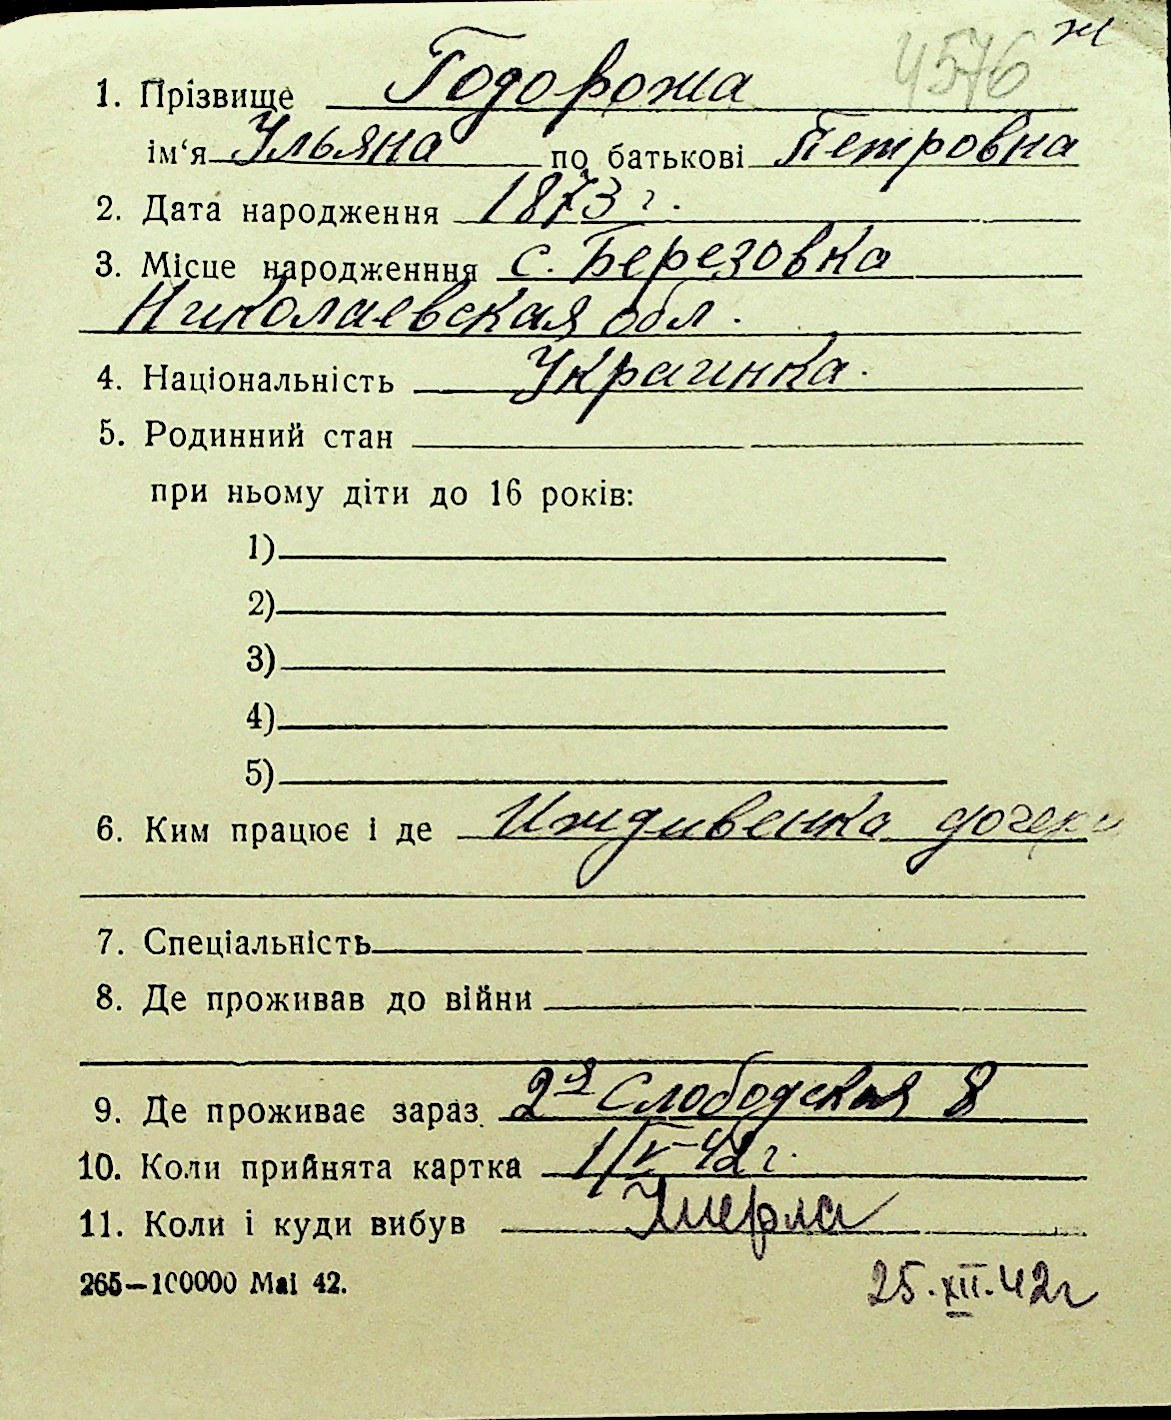 4576 ж
1. Прізвище Годорожа
ім‘я Ульяна по батькові Петровна
2. Дата народження 1873 г.
3. Місце народженння с. Березовка
Николаевская обл.
4. Національність Украинка.
5. Родинний стан
при ньому діти до 16 років:
1)
2)
3)
4)
5)
6. Ким працює і де Иждивенка дочери
7. Спеціальність
8. Де проживав до війни
9. Де проживає зараз 2я Слободская 8
10. Коли прийнята картка 1/V-42 г.
11. Коли і куди вибув Умерла
265—100000 Mai 42.
25.XII.42г